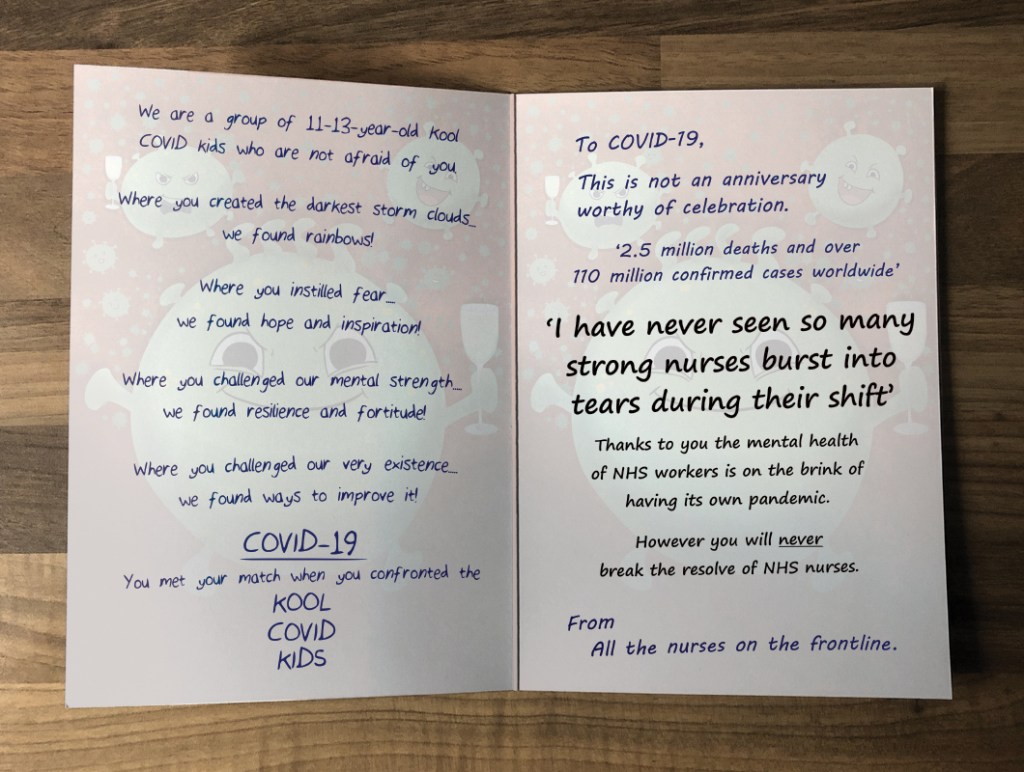 We are a group of 11-13-year-old Kool
COVID kids who are not afraid of you
Where you created the darkest storm clouds...
we found rainbows!
Where you instilled fear...
we found hope and inspiration!
Where you challenged our mental strength....
we found resilience and fortitude!
Where you challenged our very existence....
we found ways to improve it!
COVID-19
You met your match when you confronted the
KOOL
COVID
KIDS
To COVID-19,
This is not an anniversary
worthy of celebration.
'2.5 million deaths and over
110 million confirmed cases worldwide'
'I have never seen so many
strong nurses burst into
tears during their shift'
Thanks to you the mental health
of NHS workers is on the brink of
having its own pandemic.
However you will never
break the resolve of NHS nurses.
From
All the nurses on the frontline.